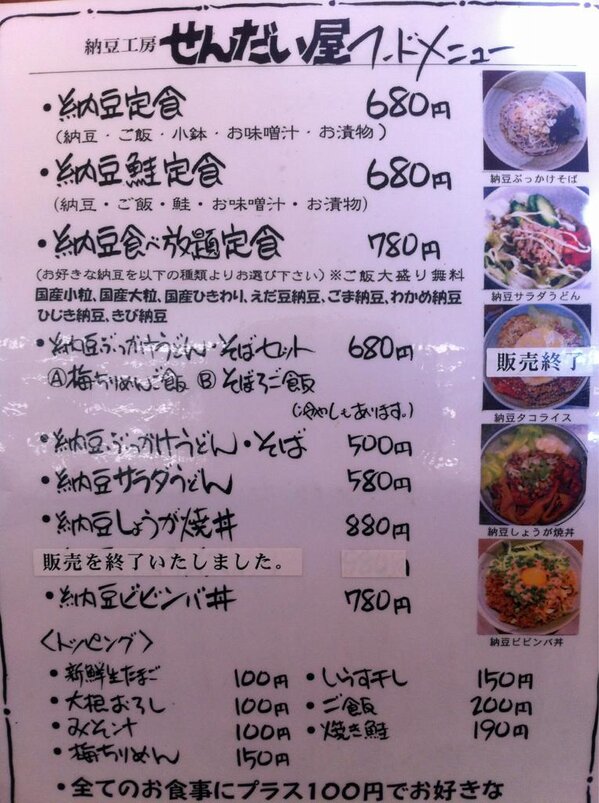 納豆工房 せんだい屋 フードメニュー
・納豆定食 680円
(納豆・ご飯・小鉢・お味噌汁・お漬物)
・納豆鮭定食 680円
(納豆・ご飯・鮭・お味噌汁・お漬物)
納豆ぶっかけそば
・納豆食べ放題定食 780円
(お好きな納豆を以下の種類よりお選び下さい)※ご飯大盛り無料
国産小粒、国産大粒、国産ひきわり、えだ豆納豆、ごま納豆、わかめ納豆
ひじき納豆、きび納豆
納豆サラダうどん
・納豆ぶっかけうどん・そばセット 680円
Ⓐ梅ちりめんご飯 Ⓑそぼろご飯
(冷やしもあります。)
販売終了
納豆タコライス
・納豆ぶっかけうどん・そば 500円
・納豆サラダうどん 580円
・納豆しょうが焼丼 880円
納豆しょうが焼丼
販売を終了いたしました。
・納豆ビビンバ丼 780円
納豆ビビンバ丼
〈トッピング〉
・新鮮生たまご 100円 ・しらす干し 150円
・大根おろし 100円 ・ご飯 200円
・みそ汁 100円 ・焼き鮭 190円
・梅ちりめん 150円
・全てのお食事にプラス100円でお好きな